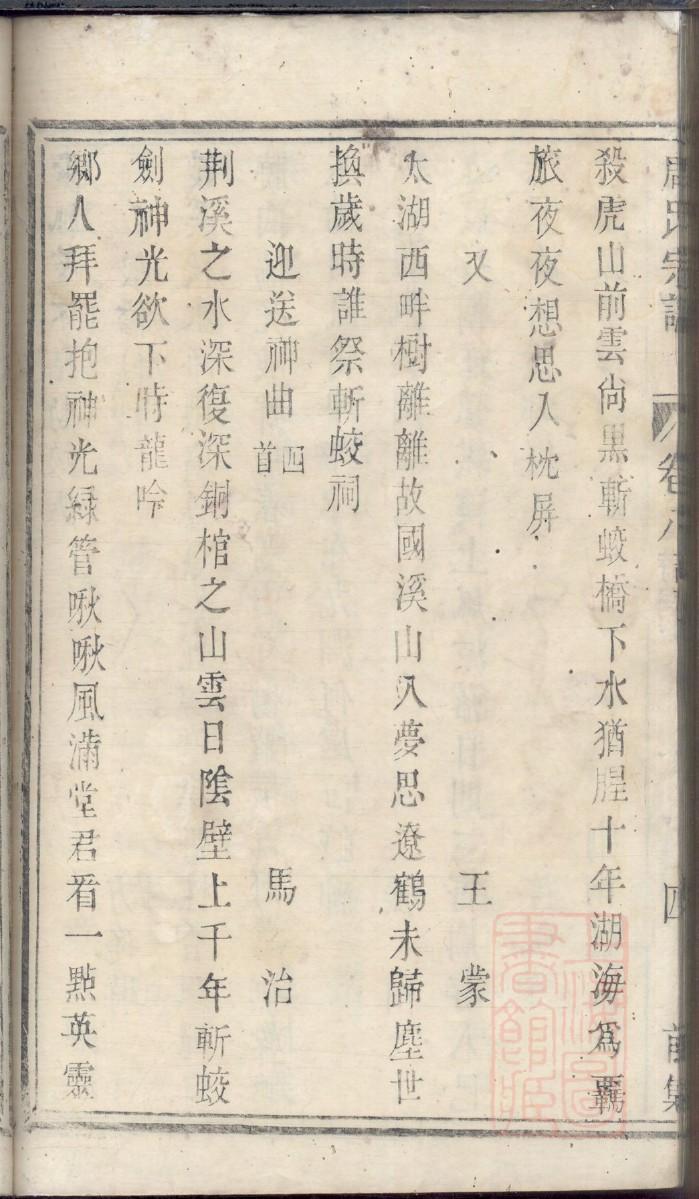 周氏宗譜 卷八 四 前集
殺虎山前雲尙黒斬蛟橋下水猶腥十年湖海爲羈
旅夜夜想思入枕屏
又 王蒙
太湖西畔樹離離故國溪山入夢思遼鶴未歸塵世
換歲時誰祭斬蛟祠
迎送神曲四首 馬治
荆溪之水深復深銅棺之山雲日陰壁上千年斬蛟
劍神光欲下時龍吟
鄉人拜罷抱神光緑管啾啾風滿堂君看一點英靈